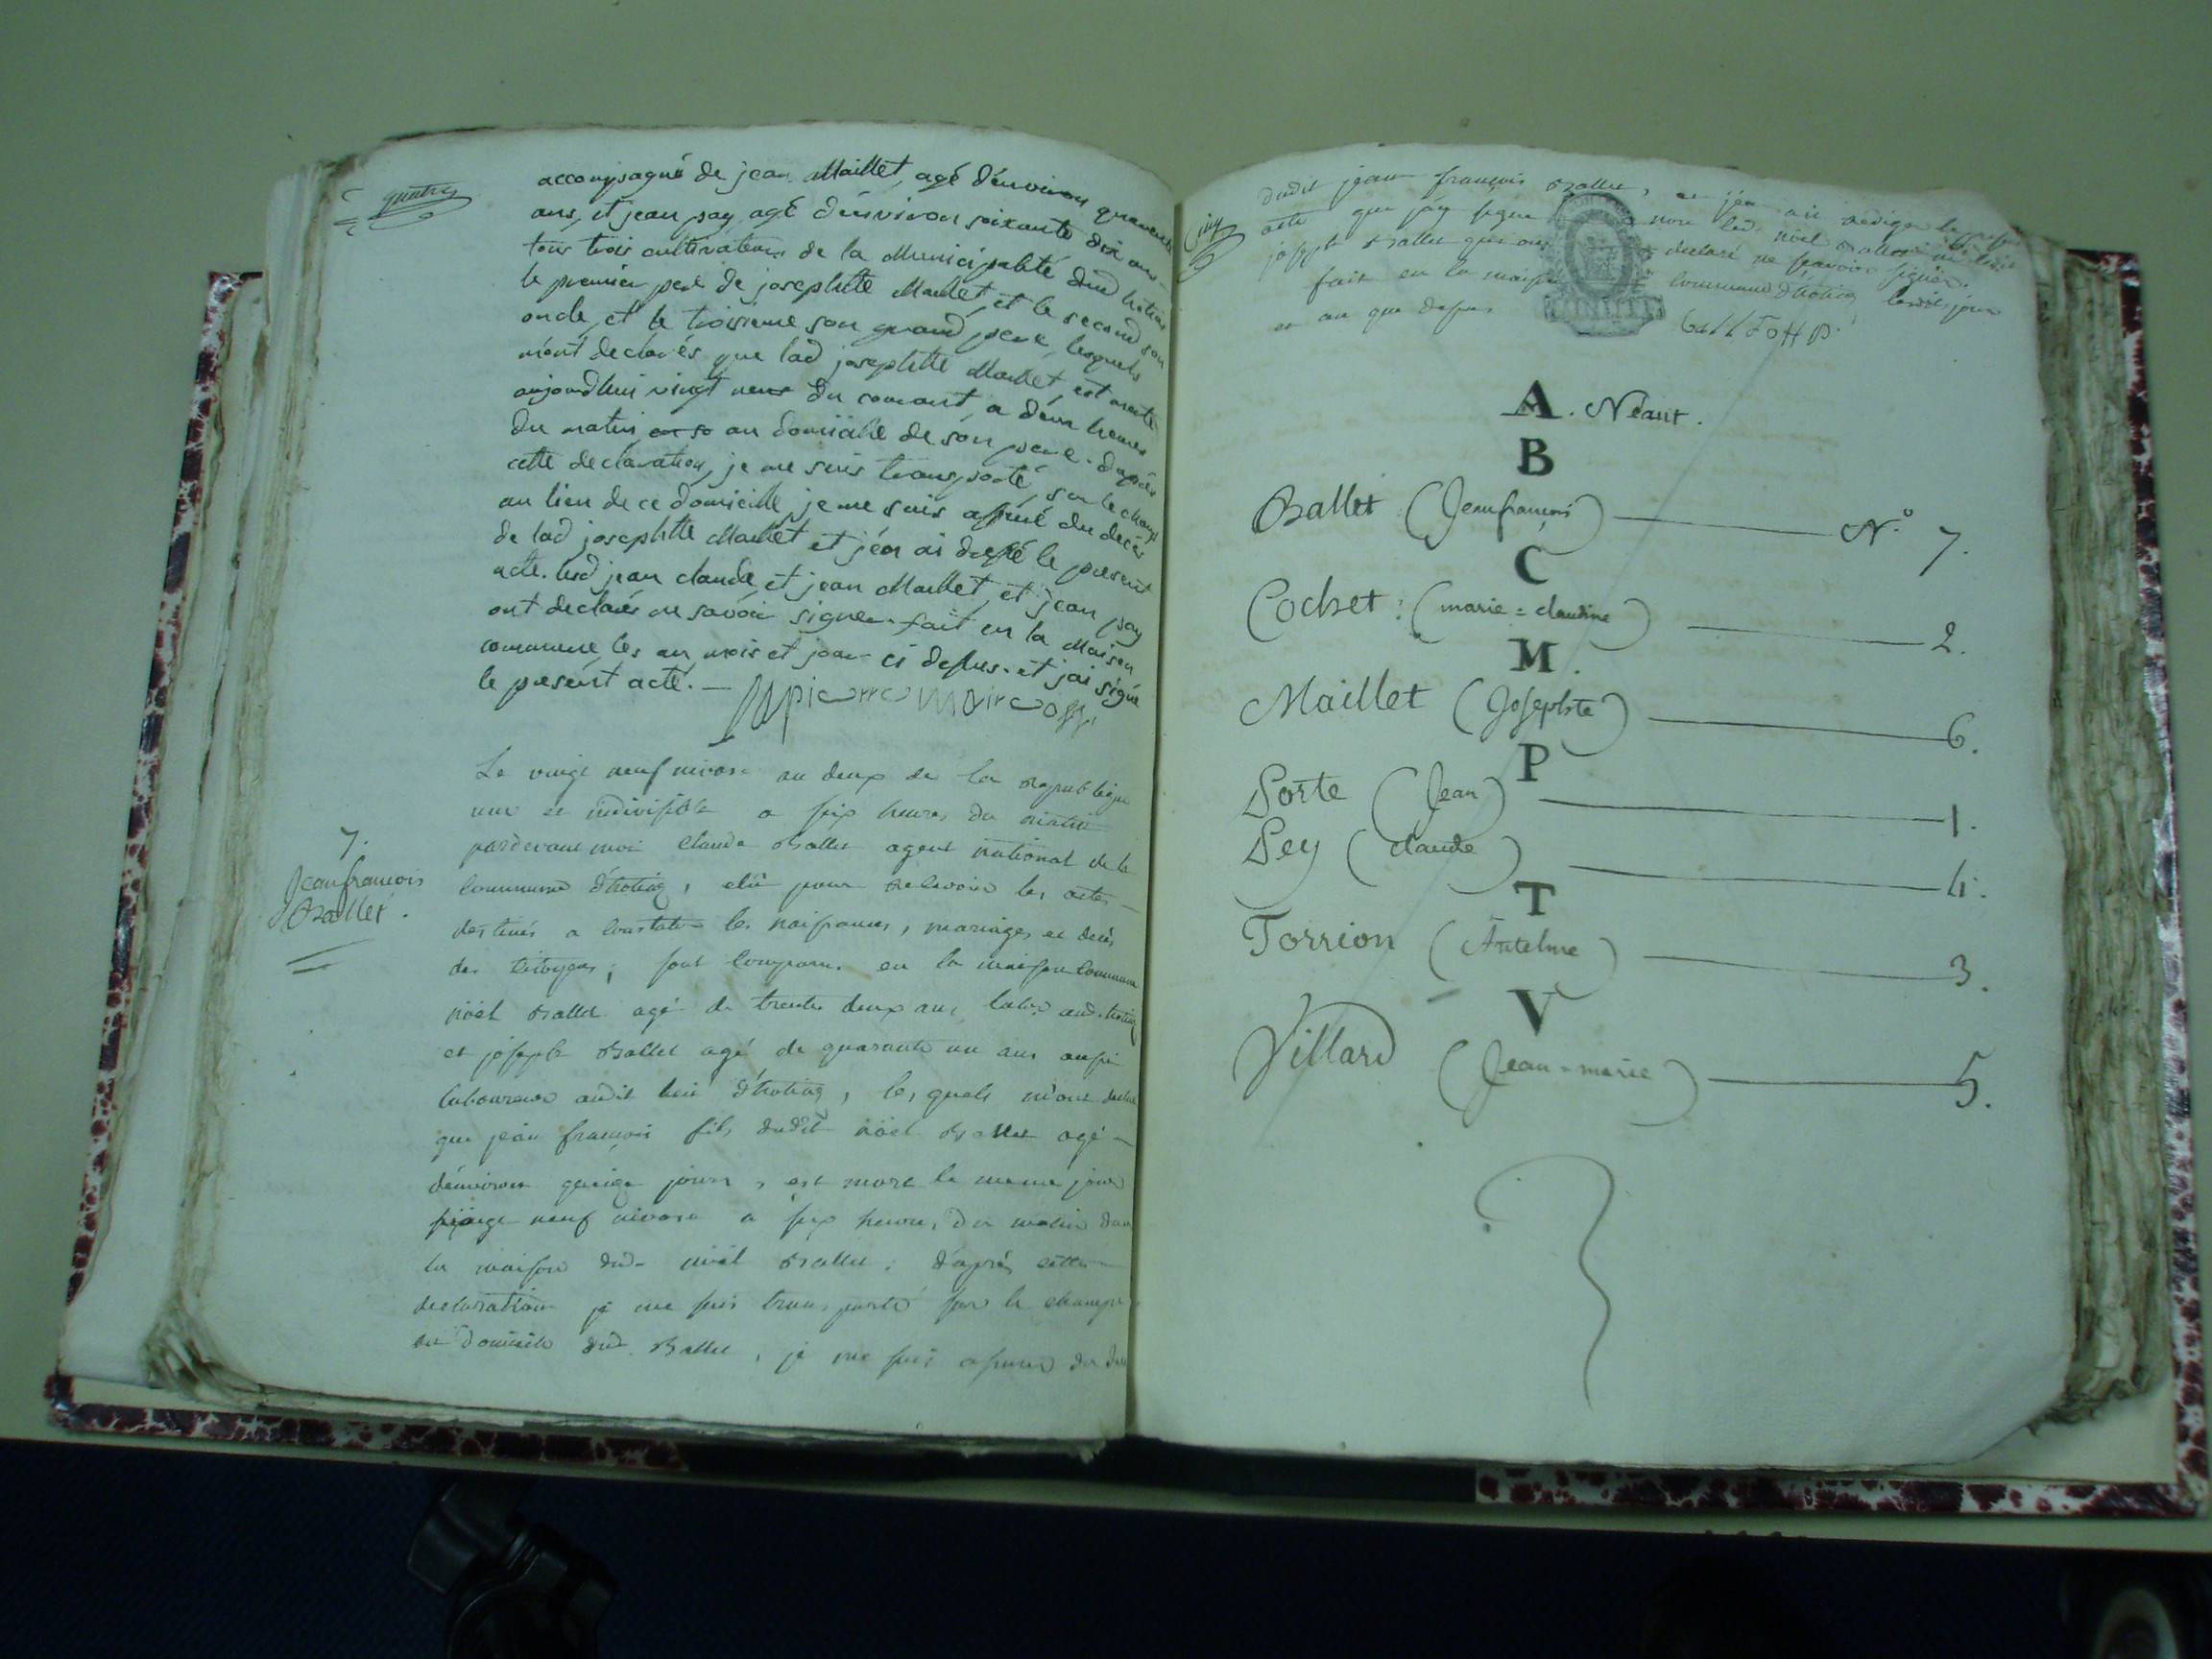 quatre
accompagné de jean Maillet, agé d'environ quarante
ans, et jean pay, agé d'environ soixante dix ans
tous trois cultivateurs de la Municipalité dud hotias
le premier pere de josephtte Maillet, et le second son
oncle, et le troisieme son grand pere, lesquels
m'ont declarés que lad josephtte Maillet, est morte
aujourdhui vingt neuf du courant, a deux heures
du matin au domicille de son pere. d'après
cette declaration, je me suis transporté, sur le champ
au lieu de ce domicille, je me suis assuré du decès
de lad josephtte Maillet et j'en ai dressé le present
acte. lesd jean claude, et jean Maillet, et jean pay
ont declarés ne savoir signer. fait en la Maison
commune les an mois et jour ci dessus. et j'ai signé
le present acte. —
7.
Jeanfrancois
Ballet.
Le vingt neuf nivose an deux de la republique
une et indivisible a six heures du matin
pardevant moi Claude Ballet agent national de la
commune d'hotiaz, elû pour recevoir les actes
destinés a constater les naissances, mariages et decès
des citoyens; sont comparus en la maison commune
nöel Ballet agé de trente deux ans, labr. aud. hotiaz
et joseph Ballet agé de quarante un ans aussi
laboureur audit lieu d'hotiaz, lesquels m'ont declaré
que jean françois fils dudit nöel Ballet agé
d'environ quinze jours, est mort le meme jour
vingt neuf nivose a six heures du matin dans
la maison dud. nöel Ballet; d'après cette
declaration je me suis transporté sur le champ
au domicile dud. Ballet, je me suis assuré du decès
Cinq
dudit jean françois Ballet, et j'en ai redigé le present
acte que j'ay signé non led. nöel Ballet ni ledit
joseph Ballet qui ont declaré ne sçavoir signer.
fait en la maison commune d'hotiaz lesdits jour
et an que dessus
A. Néant.
B
Ballet (Jeanfrançois) N.° 7.
C
Cochet: (marie=claudine) 2.
M.
Maillet (Josephte) 6.
P
Porte (Jean) 1.
Pey (claude) 4.
T
Torrion (Antelme) 3.
V
Villard (Jean=marie) 5.